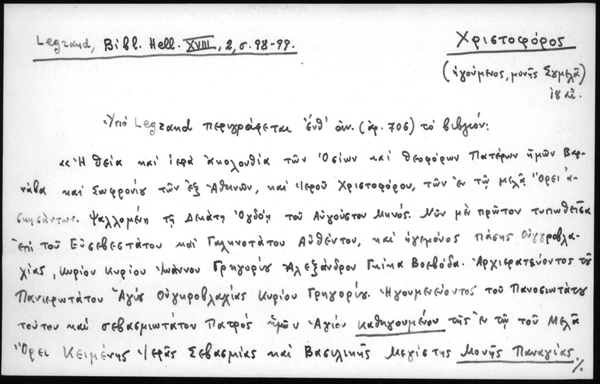 Legrand, Bibl. Hell. XVIII, 2, σ. 98-99.
Χριστοφόρος
(ἡγούμενος, μονῆς Σουμελᾶ)
18 αἰ.
Ὑπὸ Legrand περιγράφεται ἐνθ' ἀν. (ἀρ. 706) τὸ βιβλίον:
«Ἡ θεία καὶ ἱερὰ ἀκολουθία τῶν Ὁσίων καὶ θεοφόρων Πατέρων ἡμῶν Βαρ-
νάβα καὶ Σωφρονίου τῶν ἐξ Ἀθηνῶν, καὶ Ἱεροῦ Χριστοφόρου, τῶν ἐν τῷ μελᾷ Ὄρει ἀ-
σκησάντων. Ψαλλομένη τῇ Δεκάτῃ Ὀγδόῃ τοῦ Αὐγούστου Μηνός. Νῦν μὲν πρῶτον τυπωθεῖσα
ἐπὶ τοῦ Εὐσεβεστάτου καὶ Γαληνοτάτου Αὐθέντου, καὶ ἡγεμόνος Πάσης Οὐγγροβλα-
χίας, κυρίου Κυρίου Ἰωάννου Γρηγορίου Ἀλεξάνδρου Γκίκα Βοεβόδα. Ἀρχιερατεύοντος τοῦ
Πανιερωτάτου Ἁγίου Οὐγκροβλαχίας Κυρίου Γρηγορίου. Ἡγουμενεύοντος τοῦ Πανοσιωτάτου
τούτου καὶ σεβασμιωτάτου Πατρὸς ἡμῶν Ἁγίου Καθηγουμένου τῆς ἐν τῷ τοῦ Μελᾶ
Ὄρει Κειμένης Ἱερᾶς Σεβασμίας καὶ Βασιλικῆς Μεγίστης Μονῆς Παναγίας
./.